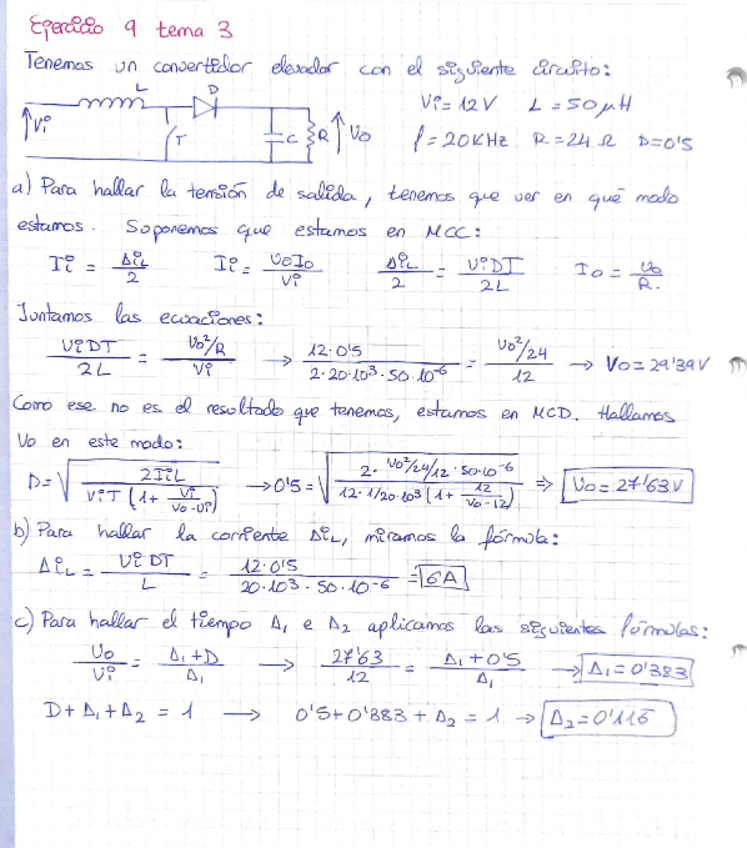 Ejercicio 9 tema 3
Tenemos un convertidor elevador con el siguiente circuito:
L D
Vi T C R Vo
Vi = 12 V L = 50 μH
f = 20 KHz R = 24 Ω D = 0'5
a) Para hallar la tensión de salida, tenemos que ver en qué modo
estamos. Soponemos que estamos en MCC:
Ii = ΔiL/2 Ii = VoIo/Vi ΔiL/2 = ViDT/2L Io = Vo/R.
Juntamos las ecuaciones:
ViDT/2L = (Vo²/R)/Vi → 12·0'5/(2·20·10³·50·10⁻⁶) = (Vo²/24)/12 → Vo = 29'39 V
Como ese no es el resultado que tenemos, estamos en MCD. Hallamos
Vo en este modo:
D = √(2IiL/(ViT(1 + Vi/(Vo-Vi)))) → 0'5 = √(2·Vo²/24/12·50·10⁻⁶/(12·1/20·10³(1 + 12/(Vo-12)))) ⇒ Vo = 27'63 V
b) Para hallar la corriente ΔiL, miramos la fórmula:
ΔiL = ViDT/L = 12·0'5/(20·10³·50·10⁻⁶) = 6A
c) Para hallar el tiempo Δ₁ e Δ₂ aplicamos las siguientes fórmulas:
Vo/Vi = (Δ₁+D)/Δ₁ → 27'63/12 = (Δ₁+0'5)/Δ₁ → Δ₁ = 0'383
D + Δ₁ + Δ₂ = 1 → 0'5 + 0'383 + Δ₂ = 1 → Δ₂ = 0'116